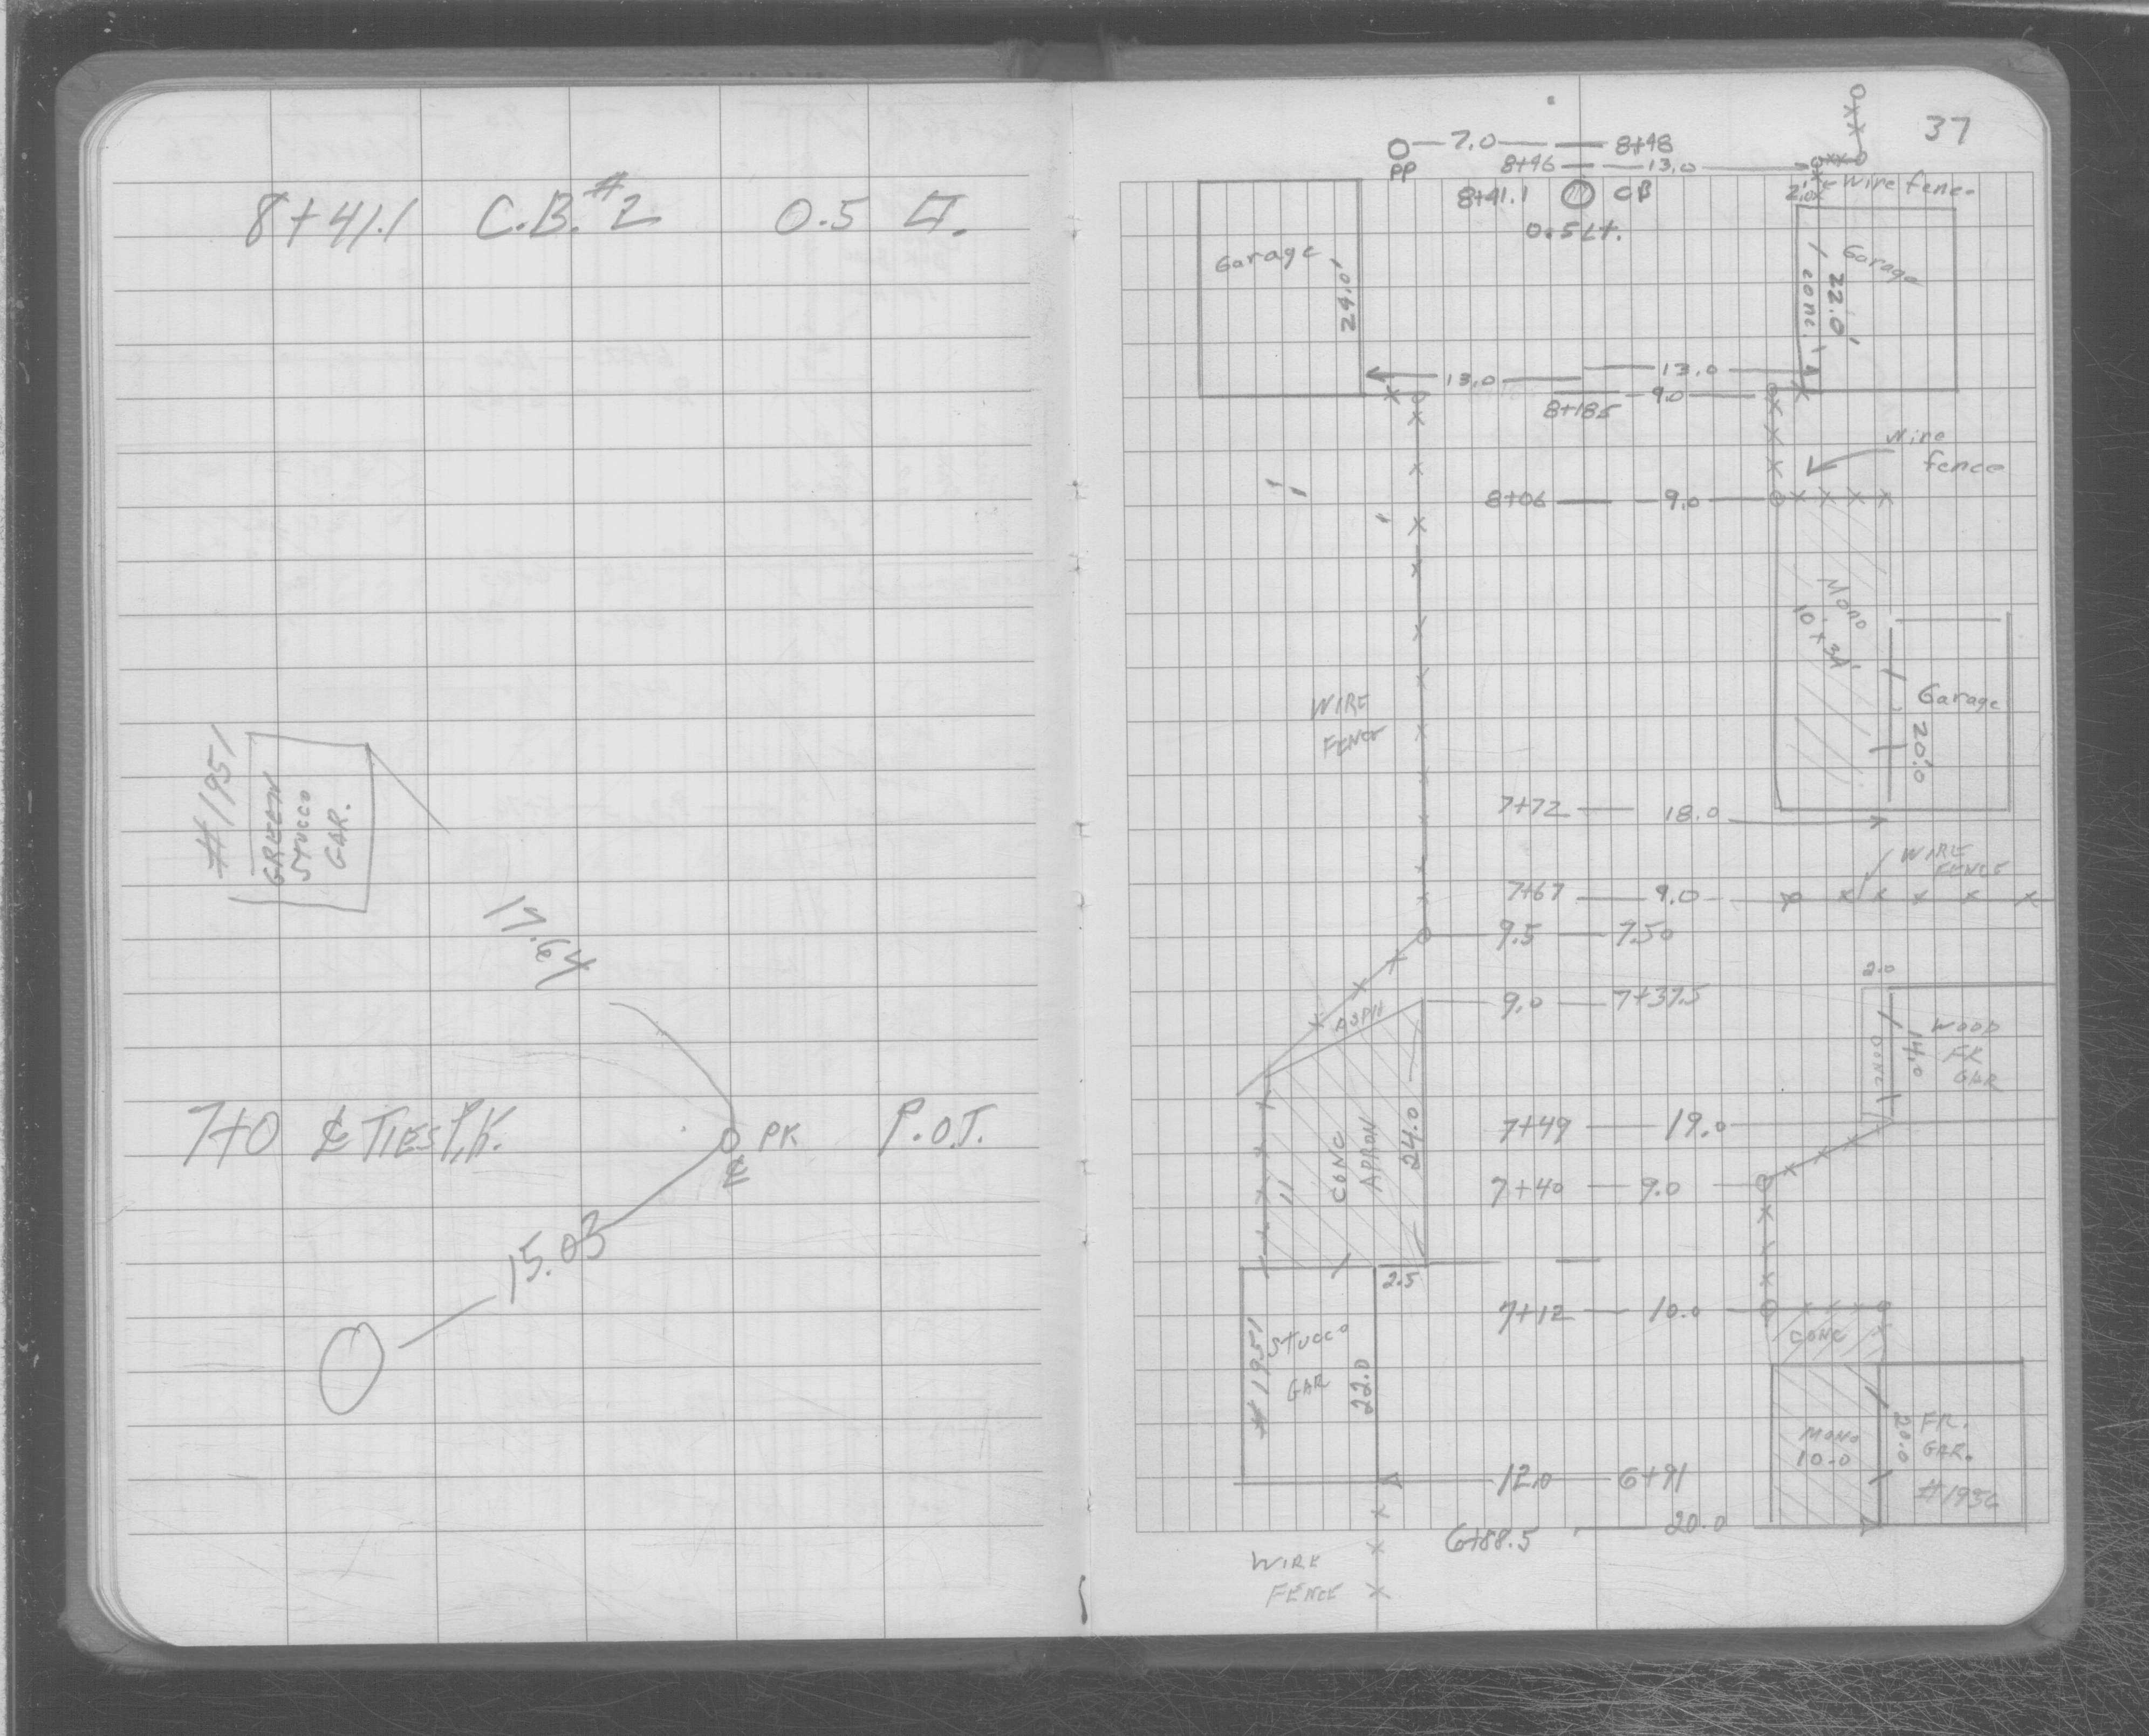 8+41.1 C.B.#2 0.5 LT.
#1951
GREEN
STUCCO
GAR.
17.64
7+0 ℄ TIES P.K.
PK P.O.T.
℄
15.03
37
7.0 8+48
PP 8+46 13.0
8+41.1 CB 2.0 Wire fence
0.5 Lt.
Garage 24.0'
Garage 22.0' conc.
13.0 13.0
8+18.5 9.0
Wire
fence
8+06 9.0
Mono
Garage
20.0
WIRE
FENCE
7+72 18.0
WIRE
FENCE
7+67 9.0
9.5 7.50
2.0
9.0 7+37.5
ASPH
WOOD
FR
GAR
14.0
CONC
CONC
APRON
24.0
7+49 19.0
7+40 9.0
2.5
7+12 10.0
CONC
#1951 Stucco
GAR
22.0
MONO
10.0
20.0 FR.
GAR.
12.0 6+91
6+88.5 20.0
WIRE
FENCE